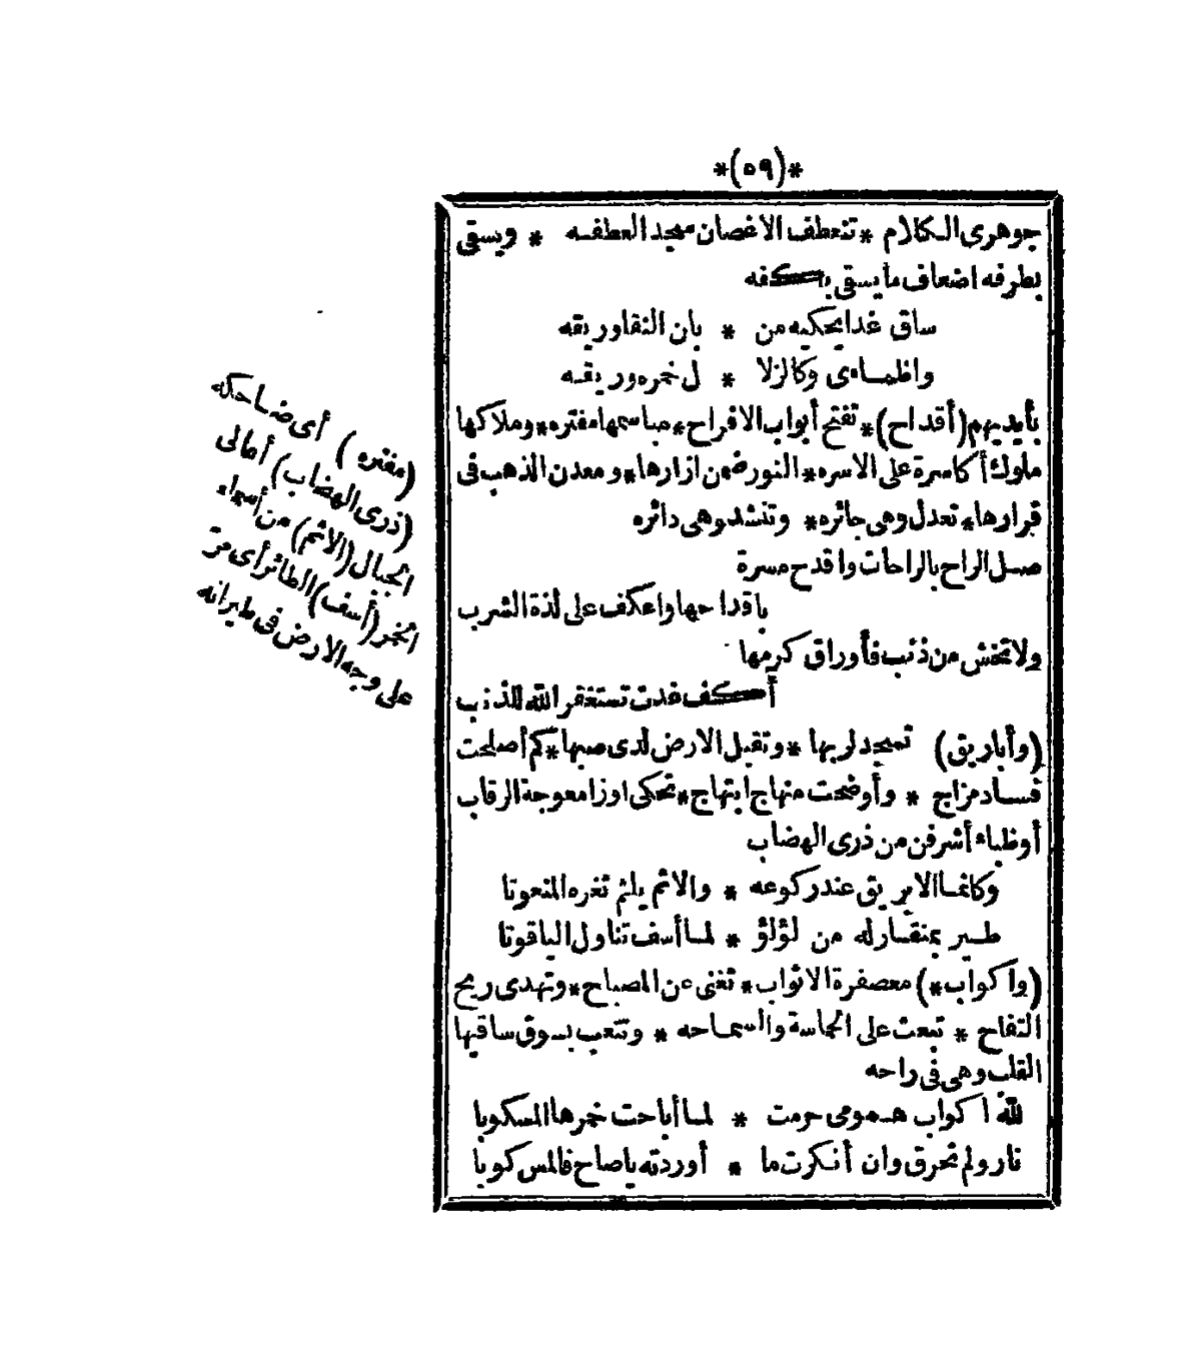 *(٥٩)*
جوهرى الكلام * تنعطف الاغصان سجد العطفه * ويسقى
بطرفه اضعاف ما يسقى باكفه
ساق غدا يحكيه من * بان النقا وريقه
واظمائى وكالزلا * ل خمره وريقه
بأيديهم (أقداح) * تفتح أبواب الافراح * مباسمها مفتره * وملاكها
ملوك أكاسرة على الاسره * النور ضمن ازارها * ومعدن الذهب فى
قرارها * تعدل وهى جائره * وتنشد وهى دائره
صل الراح بالراحات واقدح مسرة
باقداحها واعكف على لذة الشرب
ولا تخش من ذنب فأوراق كرمها
أكف غدت تستغفر الله للذنب
(وأباريق) تسجد لربها * وتقبل الارض لدى صبها * كم أصلحت
فساد مزاج * وأوضحت منهاج ابتهاج * تحكى اوزا معوجة الرقاب
أوظباء أشرفن من ذرى الهضاب
وكانما الابريق عند ركوعه * والاثم يلثم ثغره المنعوتا
طير بمنقار له من لؤلؤ * لما أسف تناول الياقوتا
(واكواب *) معصفرة الاثواب * تغنى عن المصباح * وتهدى ريح
التفاح * تبعث على الحماسة والسماحه * وتتعب بسوق ساقيها
القلب وهى فى راحه
لله اكواب همومى حرمت * لما أباحت خمرها المسكوبا
نار ولم تحرق وان أنكرت ما * أوردته يا صاح فالمس كوبا
(مفتره) أى ضاحكه
(ذرى الهضاب) أعالى
الجبال (الاثم) من أسماء
الخمر (أسف) الطائر أى مرّ
على وجه الارض فى طيرانه